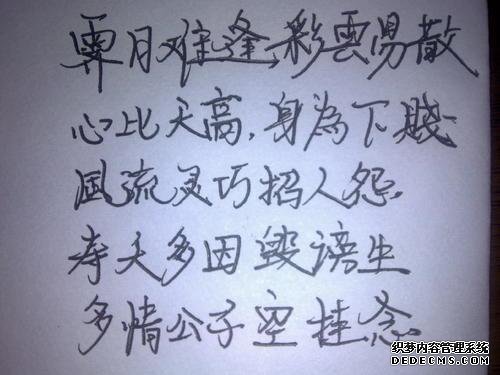 霽月难逢,彩雲易散
心比天高,身為下賤
風流灵巧招人怨,
寿夭多因毁谤生
多情公子空挂念
织梦内容管理系统
DEDECMS.COM